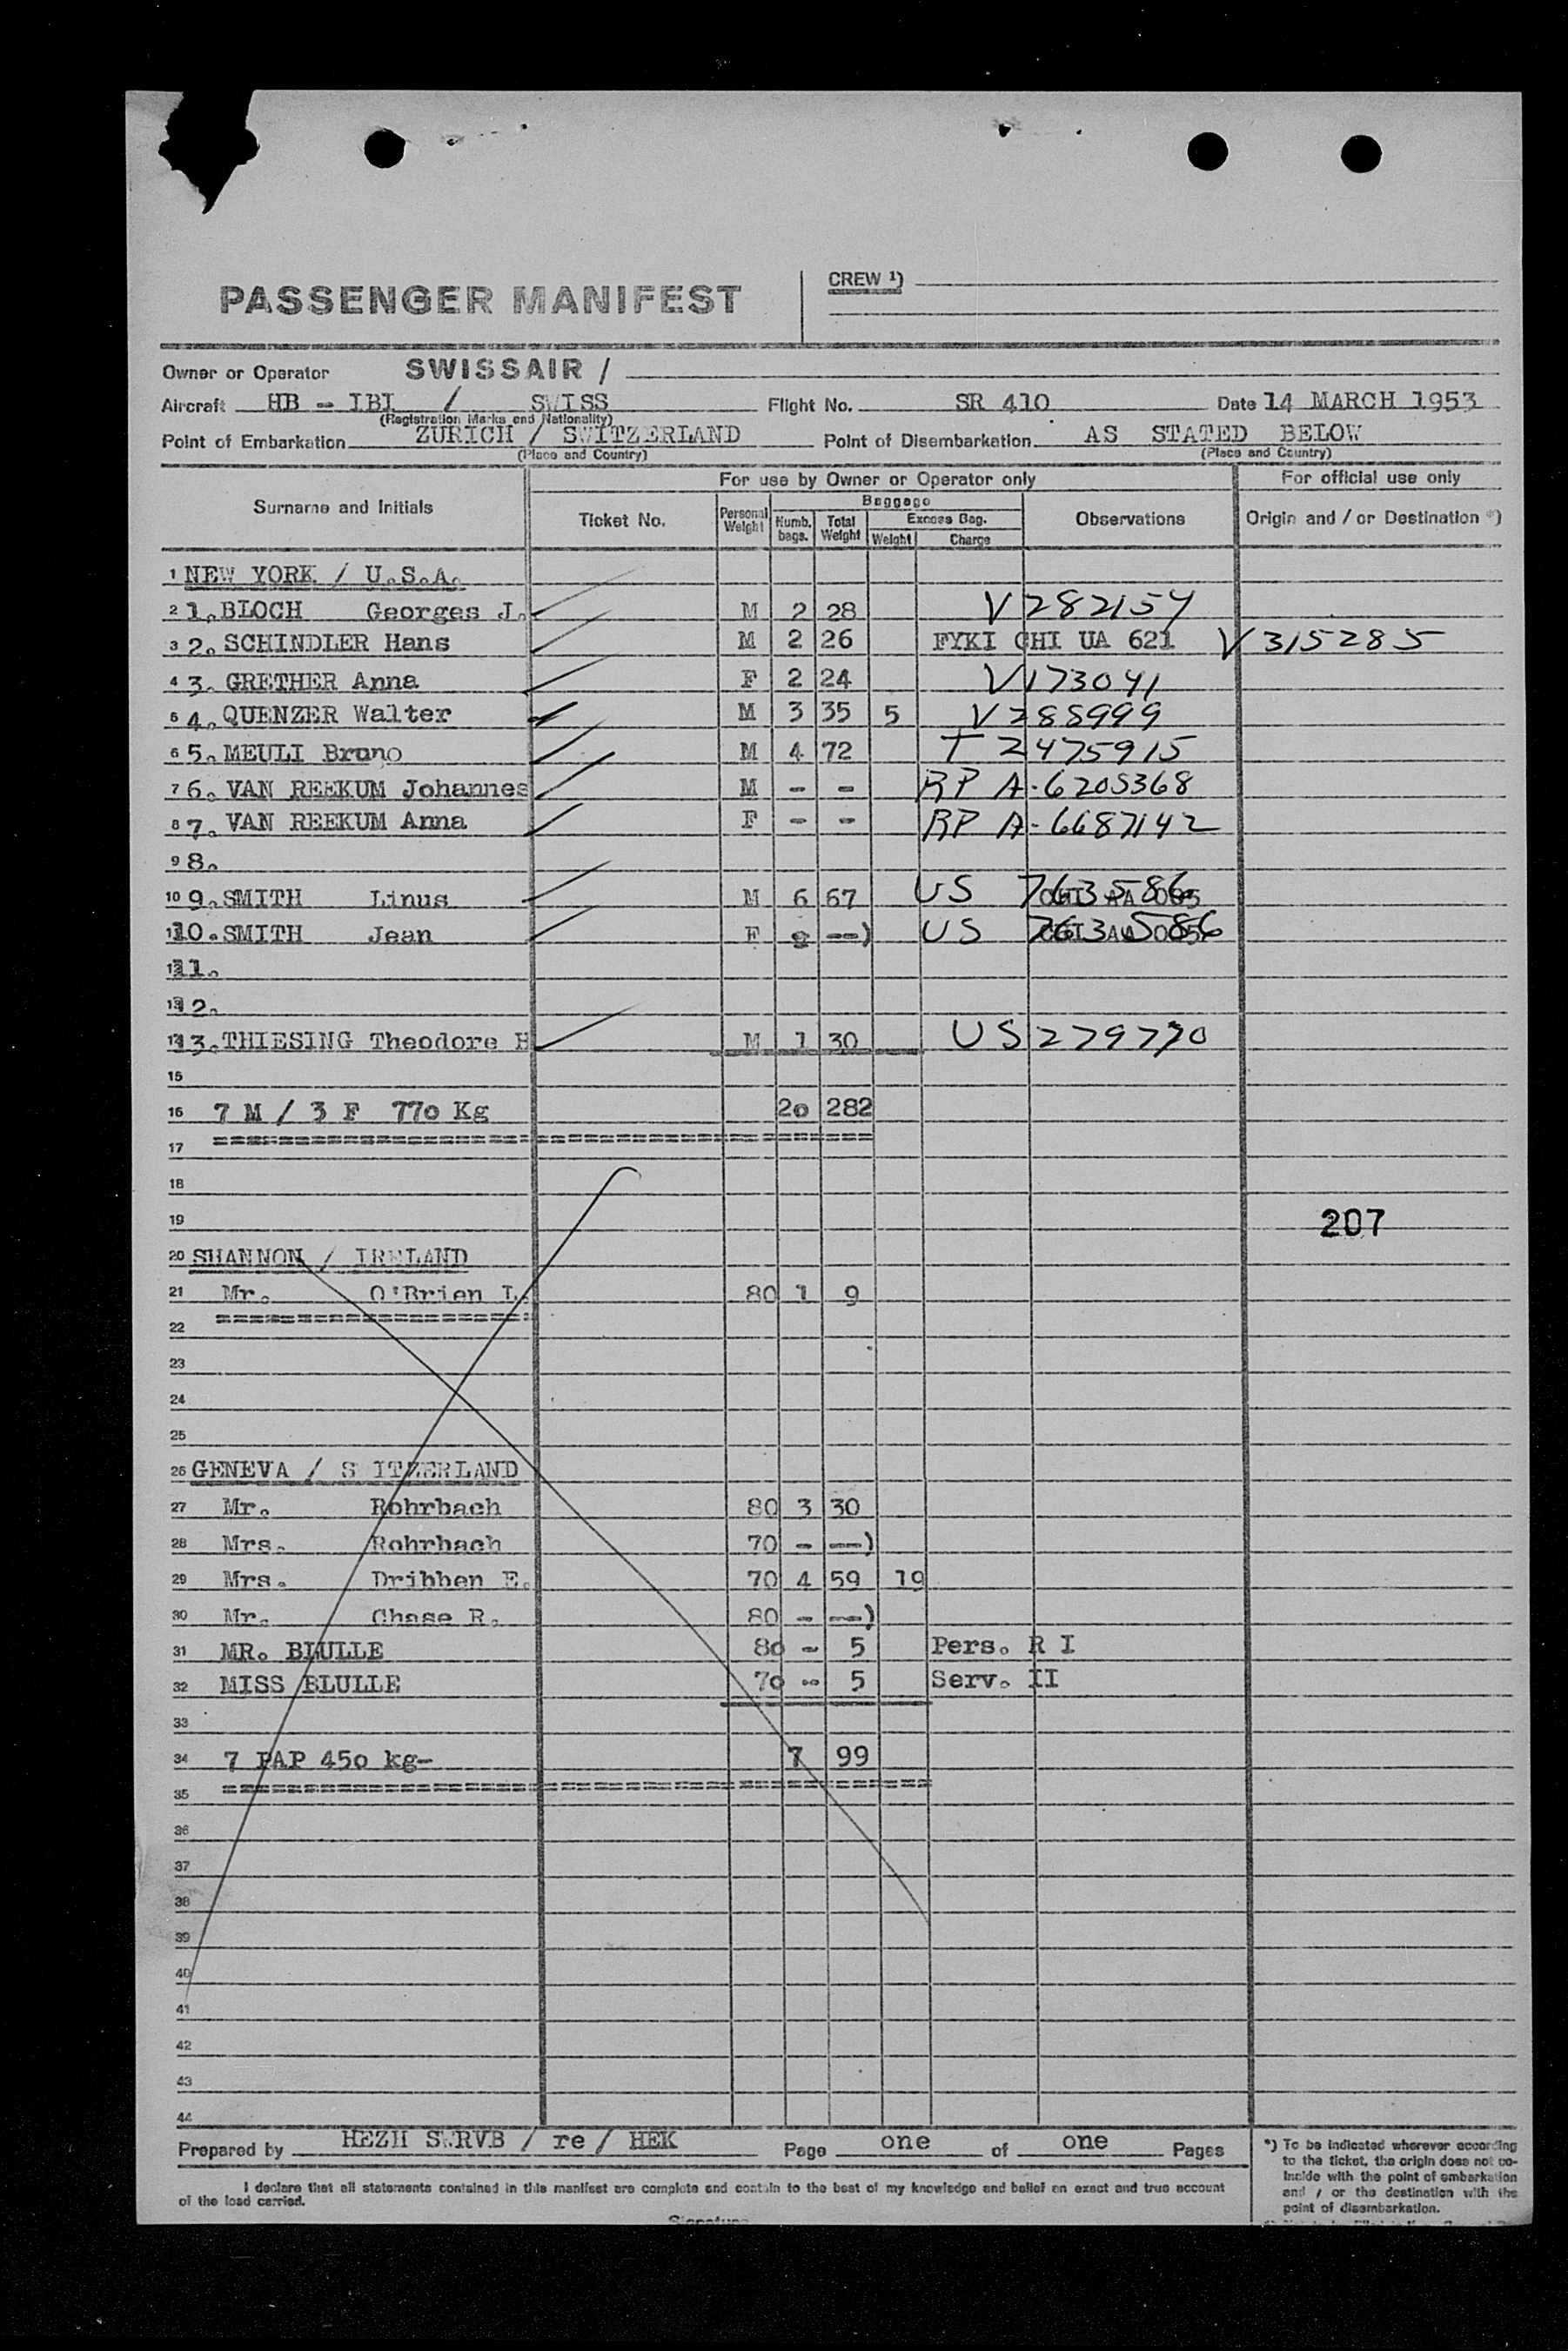 PASSENGER MANIFEST
CREW ¹)
Owner or Operator SWISSAIR /
Aircraft HB - IBI / SWISS Flight No. SR 410 Date 14 MARCH 1953
(Registration Marks and Nationality)
Point of Embarkation ZURICH / SWITZERLAND Point of Disembarkation AS STATED BELOW
(Place and Country) (Place and Country)
For use by Owner or Operator only For official use only
Surname and Initials Ticket No. Personal Weight Baggage Numb. bags. Total Weight Excess Bag. Weight Charge Observations Origin and / or Destination *)
1 NEW YORK / U.S.A.
2 1. BLOCH Georges J. M 2 28 V 282154
3 2. SCHINDLER Hans M 2 26 FYKI CHI UA 621 V 315285
4 3. GRETHER Anna F 2 24 V 173041
5 4. QUENZER Walter M 3 35 5 V 285999
6 5. MEULI Bruno M 4 72 T 2475915
7 6. VAN REEKUM Johannes M - - RP A-6205368
8 7. VAN REEKUM Anna F - - RP A-6687142
9 8.
10 9. SMITH Linus M 6 67 US 763586
10. SMITH Jean F --) US 763586
11.
12.
13. THIESING Theodore H M 1 30 US 279770
15
16 7 M / 3 F 77o Kg 2o 282
17
18
19 207
20 SHANNON / IRELAND
21 Mr. O'Brien L. 80 1 9
22
23
24
25
26 GENEVA / S ITZERLAND
27 Mr. Rohrbach 80 3 30
28 Mrs. Rohrbach 70 - --)
29 Mrs. Dribben E. 70 4 59 19
30 Mr. Chase R. 80 - --)
31 MR. BLULLE 8o - 5 Pers. R I
32 MISS BLULLE 7o -- 5 Serv. II
33
34 7 PAP 45o kg- 7 99
35
36
37
38
39
40
41
42
43
44
Prepared by HEZH SWRVB / re / HEK Page one of one Pages
I declare that all statements contained in this manifest are complete and contain to the best of my knowledge and belief an exact and true account
of the load carried.
Signature
*) To be indicated wherever according
to the ticket, the origin does not co-
incide with the point of embarkation
and / or the destination with the
point of disembarkation.